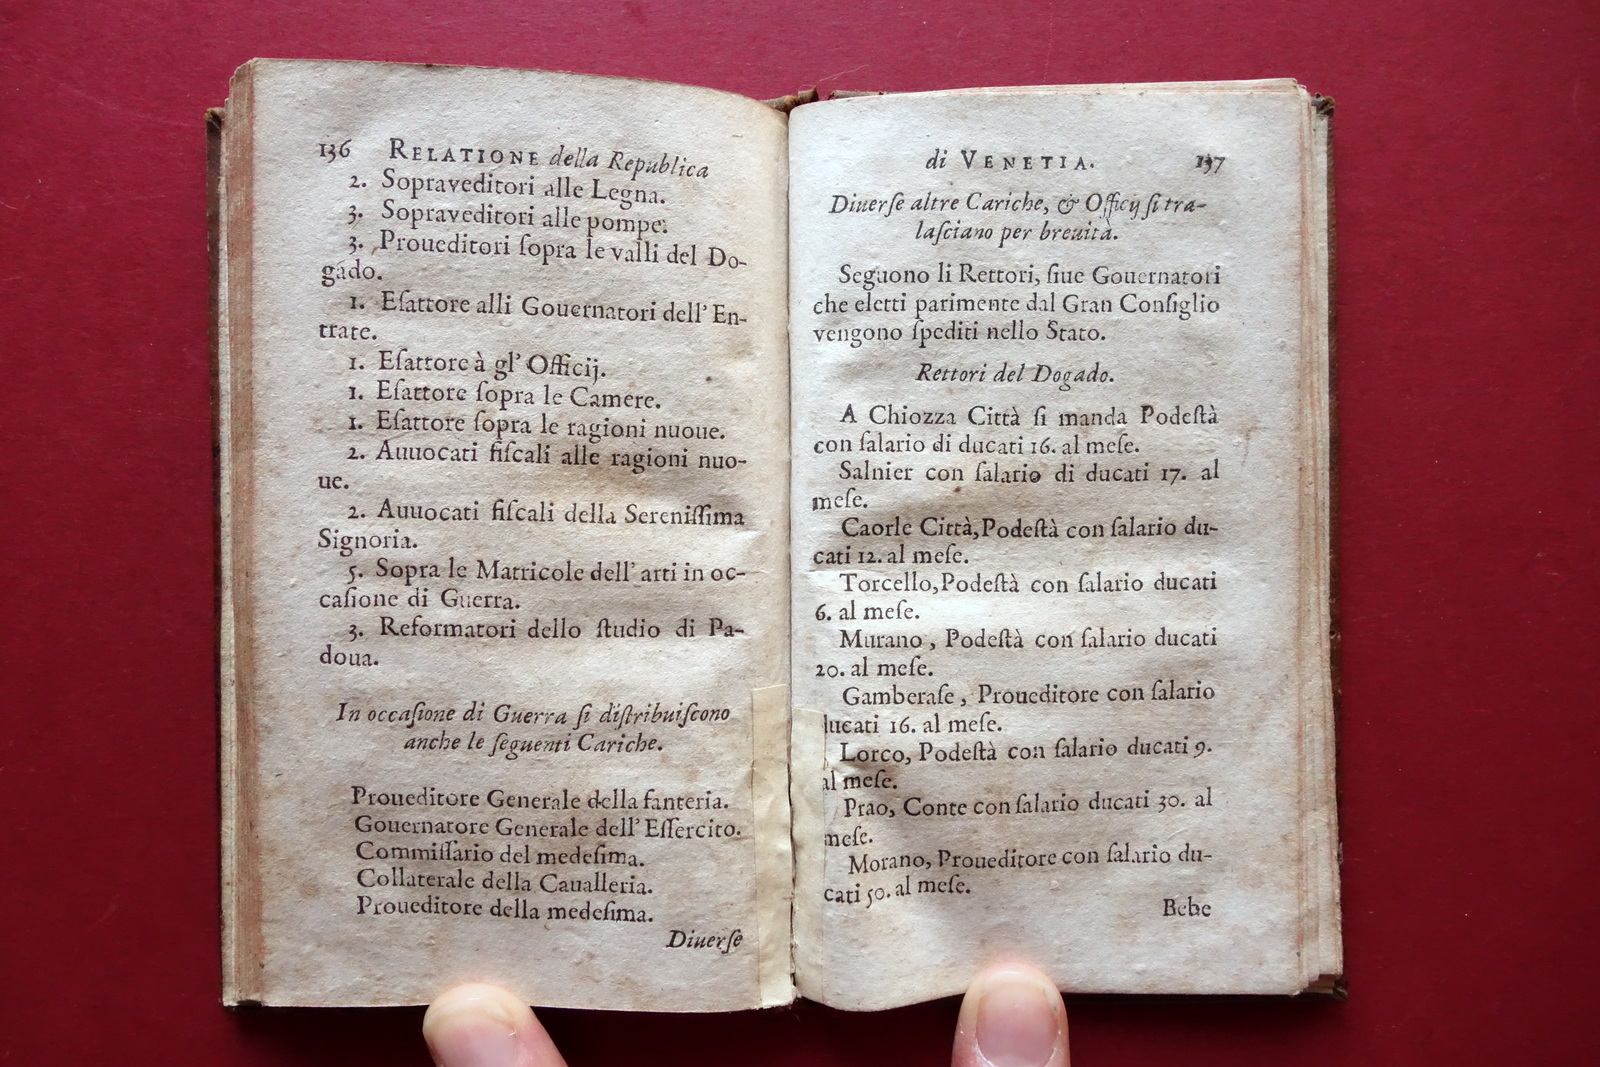 136 RELATIONE della Republica
2. Sopraveditori alle Legna.
3. Sopraveditori alle pompe.
3. Proueditori ſopra le valli del Do-
gado.
1. Eſattore alli Gouernatori dell' En-
trate.
1. Eſattore à gl' Officij.
1. Eſattore ſopra le Camere.
1. Eſattore ſopra le ragioni nuoue.
2. Auuocati fiſcali alle ragioni nuo-
ue.
2. Auuocati fiſcali della Sereniſſima
Signoria.
5. Sopra le Matricole dell' arti in oc-
caſione di Guerra.
3. Reformatori dello ſtudio di Pa-
doua.
In occaſione di Guerra ſi diſtribuiſcono
anche le ſeguenti Cariche.
Proueditore Generale della fanteria.
Gouernatore Generale dell' Eſſercito.
Commiſſario del medeſima.
Collaterale della Caualleria.
Proueditore della medeſima.
Diuerſe
di VENETIA. 137
Diuerſe altre Cariche, & Officij ſi tra-
laſciano per breuità.
Seguono li Rettori, ſiue Gouernatori
che eletti parimente dal Gran Conſiglio
vengono ſpediti nello Stato.
Rettori del Dogado.
A Chiozza Città ſi manda Podeſtà
con ſalario di ducati 16. al meſe.
Salnier con ſalario di ducati 17. al
meſe.
Caorle Città, Podeſtà con ſalario du-
cati 12. al meſe.
Torcello, Podeſtà con ſalario ducati
6. al meſe.
Murano, Podeſtà con ſalario ducati
20. al meſe.
Gamberaſe, Proueditore con ſalario
ducati 16. al meſe.
Lorco, Podeſtà con ſalario ducati 9.
al meſe.
Prao, Conte con ſalario ducati 30. al
meſe.
Morano, Proueditore con ſalario du-
cati 50. al meſe.
Bebe